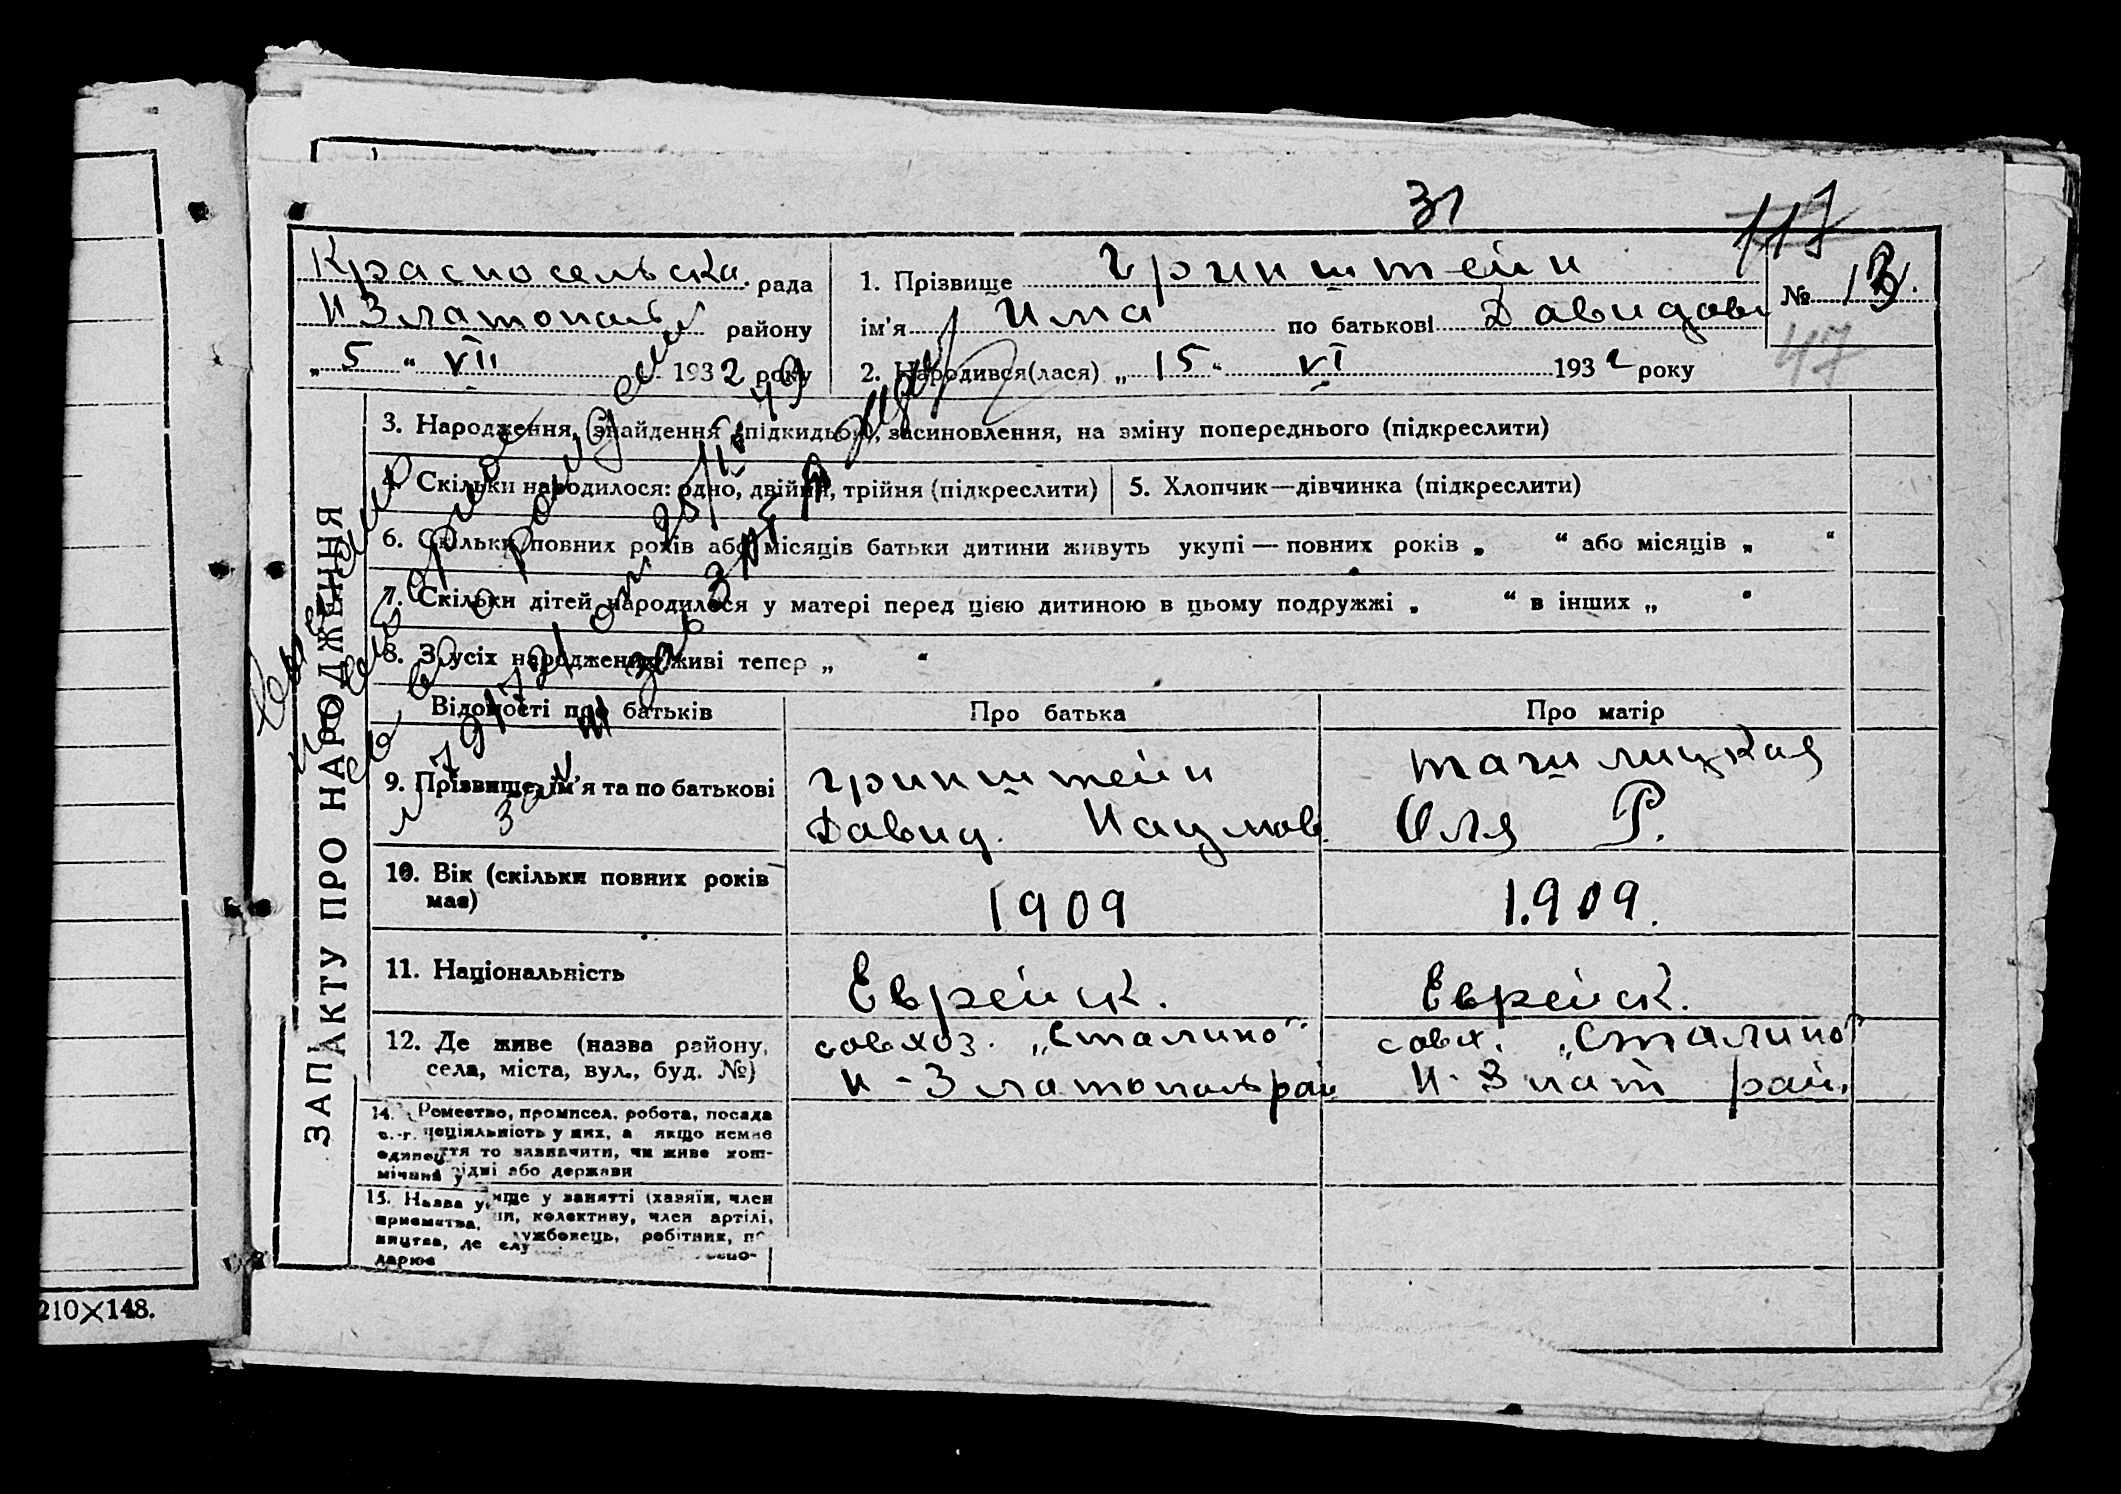 31
117
Красносельска. рада
Н Златопольс району
„ 5 “ VII 1932 року
1. Прізвище Гринштейн
ім’я Има по батькові Давидовн
2. Народився(лася) „ 15 “ VI 1932 року
№ 13.
47
ЗАП АКТУ ПРО НАРОДЖЕННЯ
3. Народження, знайдення (підкидьок), засиновлення, на зміну попереднього (підкреслити)
4. Скільки народилося: одно, двійня, трійня (підкреслити)
5. Хлопчик—дівчинка (підкреслити)
6. Скільки повних років або місяців батьки дитини живуть укупі — повних років „ “ або місяців „ “
7. Скільки дітей народилося у матері перед цією дитиною в цьому подружжі „ “ в інших „ “
8. З усіх народжених живі тепер „ “
Відомості про батьків
Про батька
Про матір
9. Прізвище, ім’я та по батькові
Гринштейн
Давид. Наумов.
Ташлицкая
Оля Р.
10. Вік (скільки повних років
має)
1909
1.909.
11. Національність
Еврейск.
Еврейск.
12. Де живе (назва району,
села, міста, вул., буд. №)
совхоз. „Сталино“
Н-Златопольрай
совх. „Сталино“
Н-Злат рай.
14. Ремество, промисел, робота, посада
то зазначити, чи живе
або держави
15. Назва
у занятті (хазяїн, член
колективу, член артілі,
робітник,
210×148.